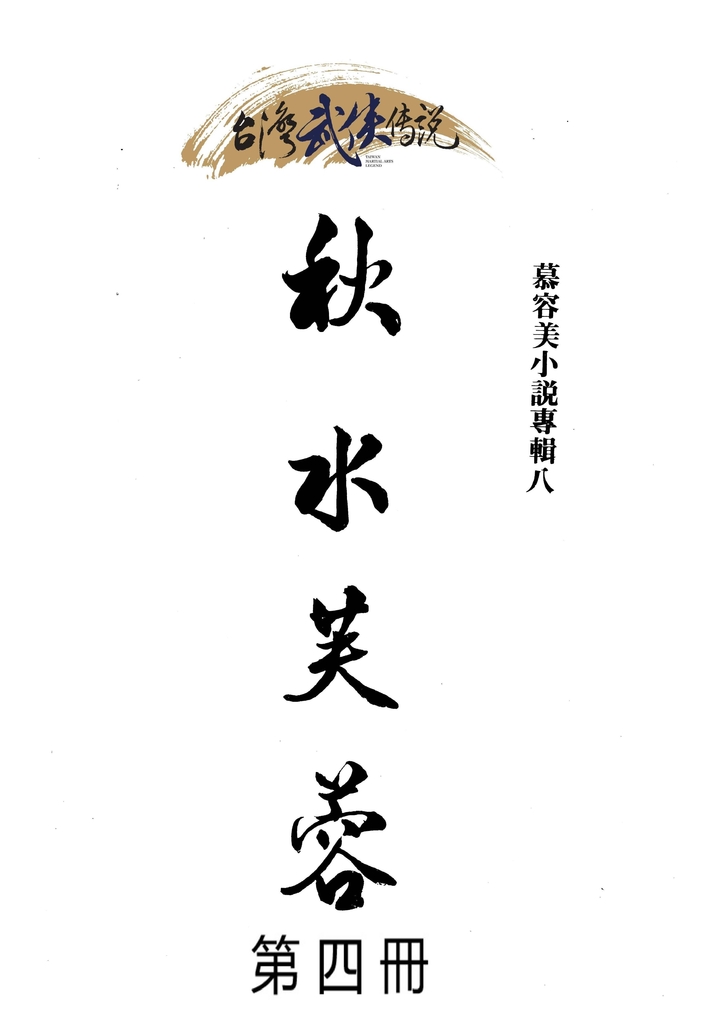 台灣武俠傳説
TAIWAN
MARTIAL ARTS
LEGEND
慕容美小説專輯八
秋水芙蓉
第四冊